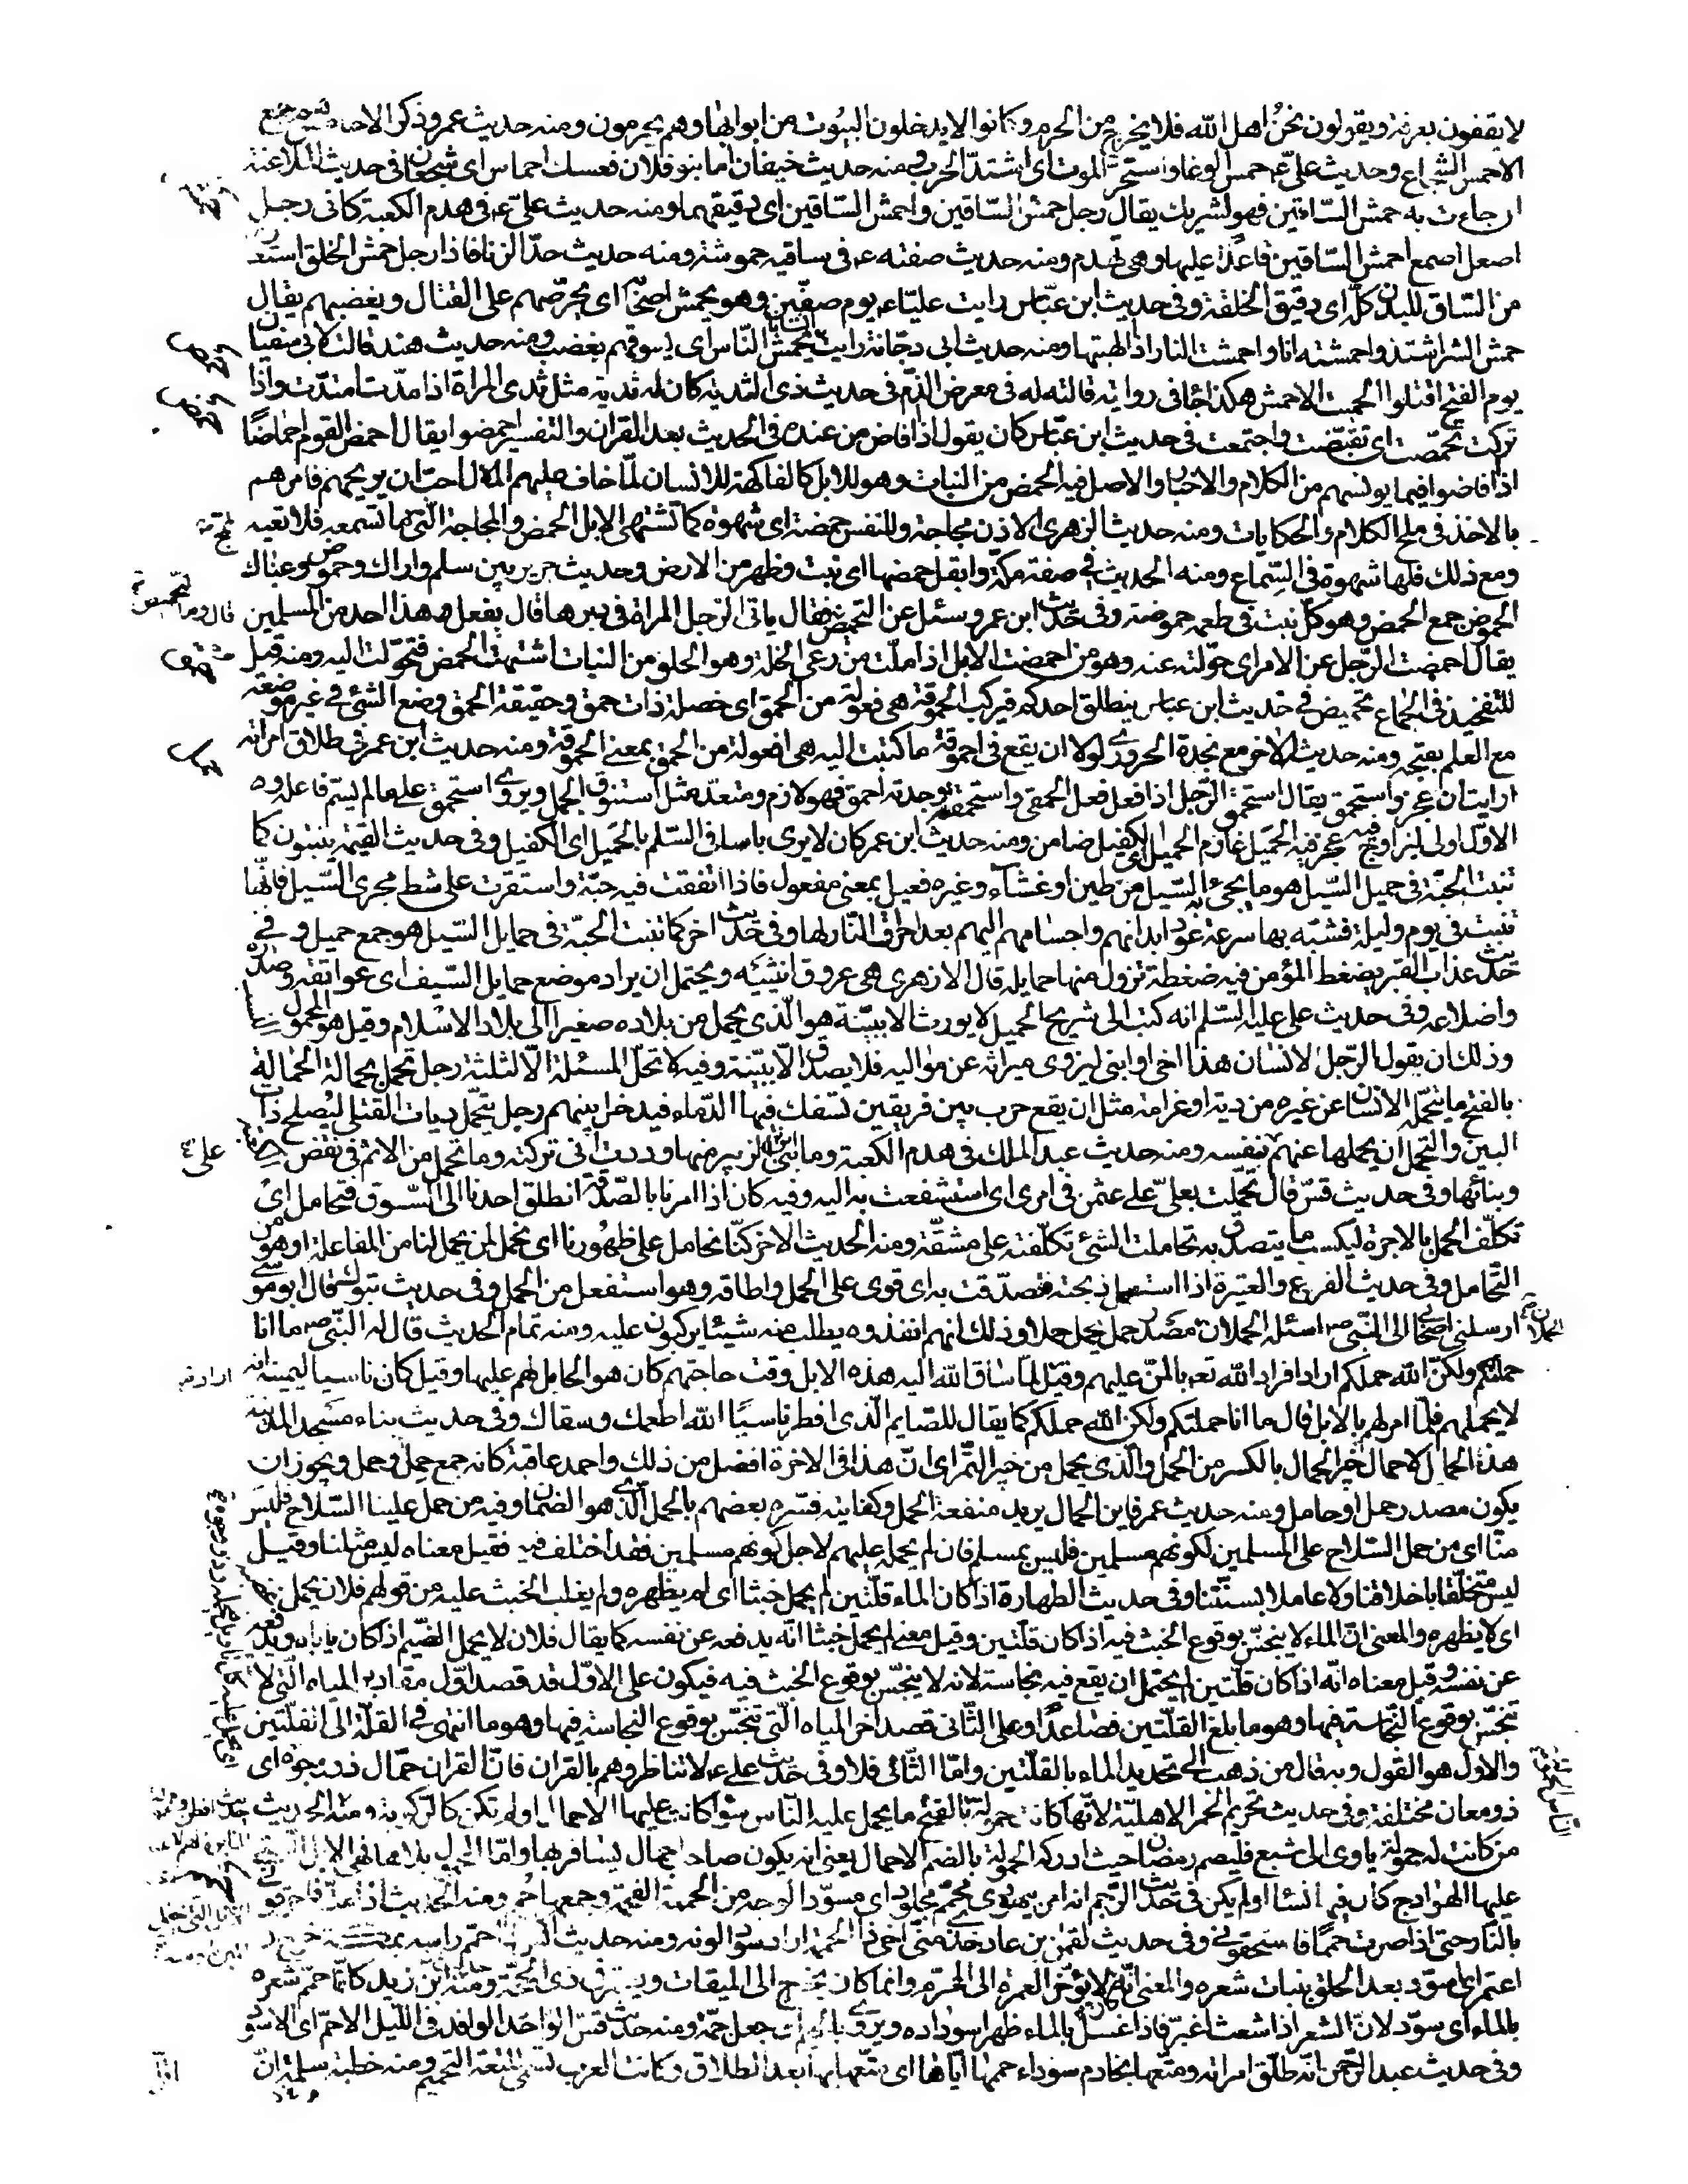 لا يقفون بعرفة ويقولون نحن اهل الله فلا يخرج من الحرم وكانوا لا يدخلون البيوت من ابوابها وهم يحرمون ومنه حديث عمر وذكر الاحامس جمع
الاحمس الشجاع وحديث على ع حمس الوغا واستحر الموت اى اشتد الحرب ومنه حديث خيفان اما بنو فلان فمسك احماس اى شجعان فى حديث الملاعنة
ان جاءت به حمش الساقين فهو لشريك يقال رجل حمش الساقين واحمش الساقين اى دقيقهما ومنه حديث على ع فى هدم الكعبة كانى رجل
اصعل اصمع احمش الساقين قاعدا عليها وهى تهدم ومنه حديث صفته ع فى ساقيه حموشة ومنه حديث حد الزنا فاذا رجل حمش الخلق استعار
من الساق للبدن كله اى دقيق الخلقة وفى حديث ابن عباس رايت عليا ع يوم صفين وهو يحمش اصحابه اى يحرضهم على القتال ويغضبهم يقال
حمش الشر اشتد واحمشته انا واحمشت النار اذا الهبتها ومنه حديث ابى دجانة رايت انسانا يحمش الناس اى يسوقهم بغضب ومنه حديث هند قالت لابى سفيان
يوم الفتح اقتلوا الحميت الاحمش هكذا جاء فى رواية قالته له فى معرض الذم فى حديث ذى الثدية كان له ثدية مثل ثدى المراة اذا مدت امتدت واذا
تركت تحمصت اى تقبضت واجتمعت فى حديث ابن عباس كان يقول اذا افاض من عنده فى الحديث بعد القران والتفسير احمضوا يقال احمض القوم احماضا
اذا افاضوا فيما يونسهم من الكلام والاخبار والاصل فيه الحمض من النبات وهو للابل كالفاكهة للانسان لما خاف عليهم الملال احب ان يريحهم فامرهم
بالاخذ فى ملح الكلام والحكايات ومنه حديث الزهرى الاذن مجاجة وللنفس حمضة اى شهوة كما تشتهى الابل الحمض والمجاجة التى تمج ما تسمعه فلا تعيه
ومع ذلك فلها شهوة فى السماع ومنه الحديث فى صفة مكة وابقل حمضها اى نبت وظهر من الارض وحديث جرير بين سلم واراك وحموض وعناك
الحموض جمع الحمض وهو كل نبت فى طعمه حموضة وفى حديث ابن عمر وسئل عن التحميض فقال ياتى الرجل المراة فى دبرها قال يفعل هذا احد من المسلمين
يقال احمضت الرجل عن الامر اى حولته عنه وهو من احمضت الابل اذا ملت من رعى الخلة وهو الحلو من النبات اشتهت الحمض فتحولت اليه ومنه قيل
للتفخيذ فى الجماع تحميض فى حديث ابن عباس ينطلق احدكم فيركب الحموقة هى فعولة من الحمق اى خصلة ذات حمق وحقيقة الحمق وضع الشئ فى غير موضعه
مع العلم بقبحه ومنه حديثه الاخر مع نجدة الحرورى لولا ان يقع فى احموقة ما كتبت اليه هى افعولة من الحمق بمعنى الحموقة ومنه حديث ابن عمر فى طلاق امراته
ارايت ان عجز واستحمق يقال استحمق الرجل اذا فعل فعل الحمقى واستحمقته وجدته احمق فهو لازم ومتعد مثل استنوق الجمل ويروى استحمق على ما لم يسم فاعله
الاول اولى ليزاوج عجز فيه الحميل غارم الحميل الكفيل اى ضامن ومنه حديث ابن عمر كان لا يرى باسا فى السلم بالحميل اى الكفيل وفى حديث القيمة ينبتون كما
تنبت الحبة فى حميل السيل هو ما يجئ به السيل من طين او غشاء وغيره فعيل بمعنى مفعول فاذا اتفقت فيه حبة واستقرت على شط مجرى السيل فانها
تنبت فى يوم وليلة فشبه بها سرعة عود ابدانهم واجسامهم اليهم بعد احراق النار لها وفى حديث اخر كما تنبت الحبة فى حمايل السيل هو جمع حميل وفى
حديث عذاب القبر يضغط المؤمن فيه ضغطة تزول منها حمايله قال الازهرى هى عروق انثييه ويحتمل ان يراد موضع حمايل السيف اى عواتقه وصدره
واضلاعه وفى حديث على عليه السلم انه كتب الى شريح الحميل لا يورث الا ببينة هو الذى يحمل من بلاده صغيرا الى بلاد الاسلام وقيل هو المحمول
وذلك ان يقول الرجل لانسان هذا اخى او ابنى ليزوى ميراثه عن مواليه فلا يصدق الا ببينة وفيه لا تحل المسئلة الا لثلثة رجل تحمل بحمالة الحمالة
بالفتح ما يتحمله الانسان عن غيره من دية او غرامة مثل ان يقع حرب بين فريقين تسفك فيها الدماء فيدخل بينهم رجل يتحمل ديات القتلى ليصلح ذات
البين والتحمل ان يحملها عنهم نفسه ومنه حديث عبد الملك فى هدم الكعبة وما بنى ابن الزبير منها وددت انى تركته وما تحمل من الاثم فى نقض
وبنائها وفى حديث قس قال تحملت بعلى على عثمن فى امرى اى استشفعت به اليه وفيه كان اذا امرنا بالصدقة انطلق احدنا الى السوق فتحامل اى
تكلف الحمل بالاجرة ليكسب ما يتصدق به تحاملت الشئ تكلفته على مشقة ومنه الحديث الاخر كنا نحامل على ظهورنا اى نحمل لمن يحمل لنا من المفاعلة او هو من
التحامل وفى حديث الفرع والعتيرة اذا استحمل ذبحته فتصدقت به اى قوى على الحمل واطاقه وهو استفعل من الحمل وفى حديث تبوك قال ابو موسى
ارسلنى اصحابى الى النبى ص اسئله الحملان مصدر حمل يحمل حملا وذلك انهم انفذوه يطلب منه شيئا يركبون عليه ومنه تمام الحديث قال له النبى ص ما انا
حملتكم ولكن الله حملكم اراد افراد الله تع بالمن عليهم وقيل لما ساق الله اليه هذه الابل وقت حاجتهم كان هو الحامل لهم عليها وقيل كان ناسيا ليمينه انه
لا يحملهم فلما امر لهم بالابل قال ما انا حملتكم ولكن الله حملكم كما يقال للصايم الذى افطر ناسيا الله اطعمك وسقاك وفى حديث بناء مسجد المدينة
هذا الحمال لا حمال خيبر الحمال بالكسر من الحمل والذى يحمل من خيبر التمر اى ان هذا فى الاخرة افضل من ذلك واحمد عاقبة كانه جمع حمل او حمل ويجوز ان
يكون مصدر حمل او حامل ومنه حديث عمر فاين الحمال يريد منفعة الحمل وكفايته فسره بعضهم بالحمل الذى هو الضمان وفيه من حمل علينا السلاح فليس
منا اى من حمل السلاح على المسلمين لكونهم مسلمين فليس بمسلم فان لم يحمله عليهم لاجل كونهم مسلمين فقد اختلف فيه فقيل معناه ليس مثلنا وقيل
ليس متخلقا باخلاقنا ولا عاملا بسنتنا وفى حديث الطهارة اذا كان الماء قلتين لم يحمل خبثا اى لم يظهره ولم يغلب الخبث عليه من قولهم فلان يحمل غضبه
اى لا يظهره والمعنى ان الماء لا ينجس بوقوع الخبث فيه اذا كان قلتين وقيل معنى لم يحمل خبثا انه يدفعه عن نفسه كما يقال فلان لا يحمل الضيم اذا كان ياباه ويدفعه
عن نفسه وقيل معناه انه اذا كان قلتين لم يحتمل ان يقع فيه نجاسة لانه لا ينجس بوقوع الخبث فيه فيكون على الاول قد قصد اول مقادير المياه التى لا
تنجس بوقوع النجاسة فيها وهو ما بلغ القلتين فصاعدا وعلى الثانى قصد اخر المياه التى تنجس بوقوع النجاسة فيها وهو ما انتهى فى القلة الى القلتين
والاول هو القول وبه قال من ذهب الى تحديد الماء بالقلتين واما الثانى فلا وفى حديث على ع لا تناظروهم بالقران فان القران حمال ذو وجوه اى
ذو معان مختلفة وفى حديث تحريم الحمر الاهلية لانها كانت حمولة بالفتح ما يحمل عليه الناس سواء كانت عليها الاحمال او لم تكن كالركوبة ومنه الحديث
من كانت له حمولة ياوى الى شبع فليصم رمضان حيث ادركه الحمولة بالضم الاحمال يعنى انه يكون صاحب احمال يسافر بها واما الحمول بلا هاء فهى الابل التى
عليها الهوادج كان فيها نساء او لم يكن فى حديث الرجم انه مر بيهودى محمم مجلود اى مسود الوجه من الحممة الفحمة وجمعها حمم ومنه الحديث اذا مت فاحرقونى
بالنار حتى اذا صرت حمما فاسحقونى وفى حديث لقمن بن عاد خذى منى اخى ذا الحممة اراد سواد لونه ومنه حديث انس اذا حمم راسه بمكة خرج و
اعتمر اى اسود بعد الحلق بنبات شعره والمعنى انه كان لا يؤخر العمرة الى المحرم وانما كان يخرج الى الميقات ويعتمر فى ذى الحجة ومنه حديث ابن زيد كانما حمم شعره
بالماء اى سود لان الشعر اذا شعث اغبر فاذا غسل بالماء ظهر سواده ويروى بالجيم اى جعل جمة ومنه حديث قس الوافد فى الليل الاحم اى الاسود
وفى حديث عبد الرحمن انه طلق امراته ومتعها بخادم سوداء حممها اياها اى متعها بها بعد الطلاق وكانت العرب تسمى المتعة التحميم ومنه خطبة سلمة ان